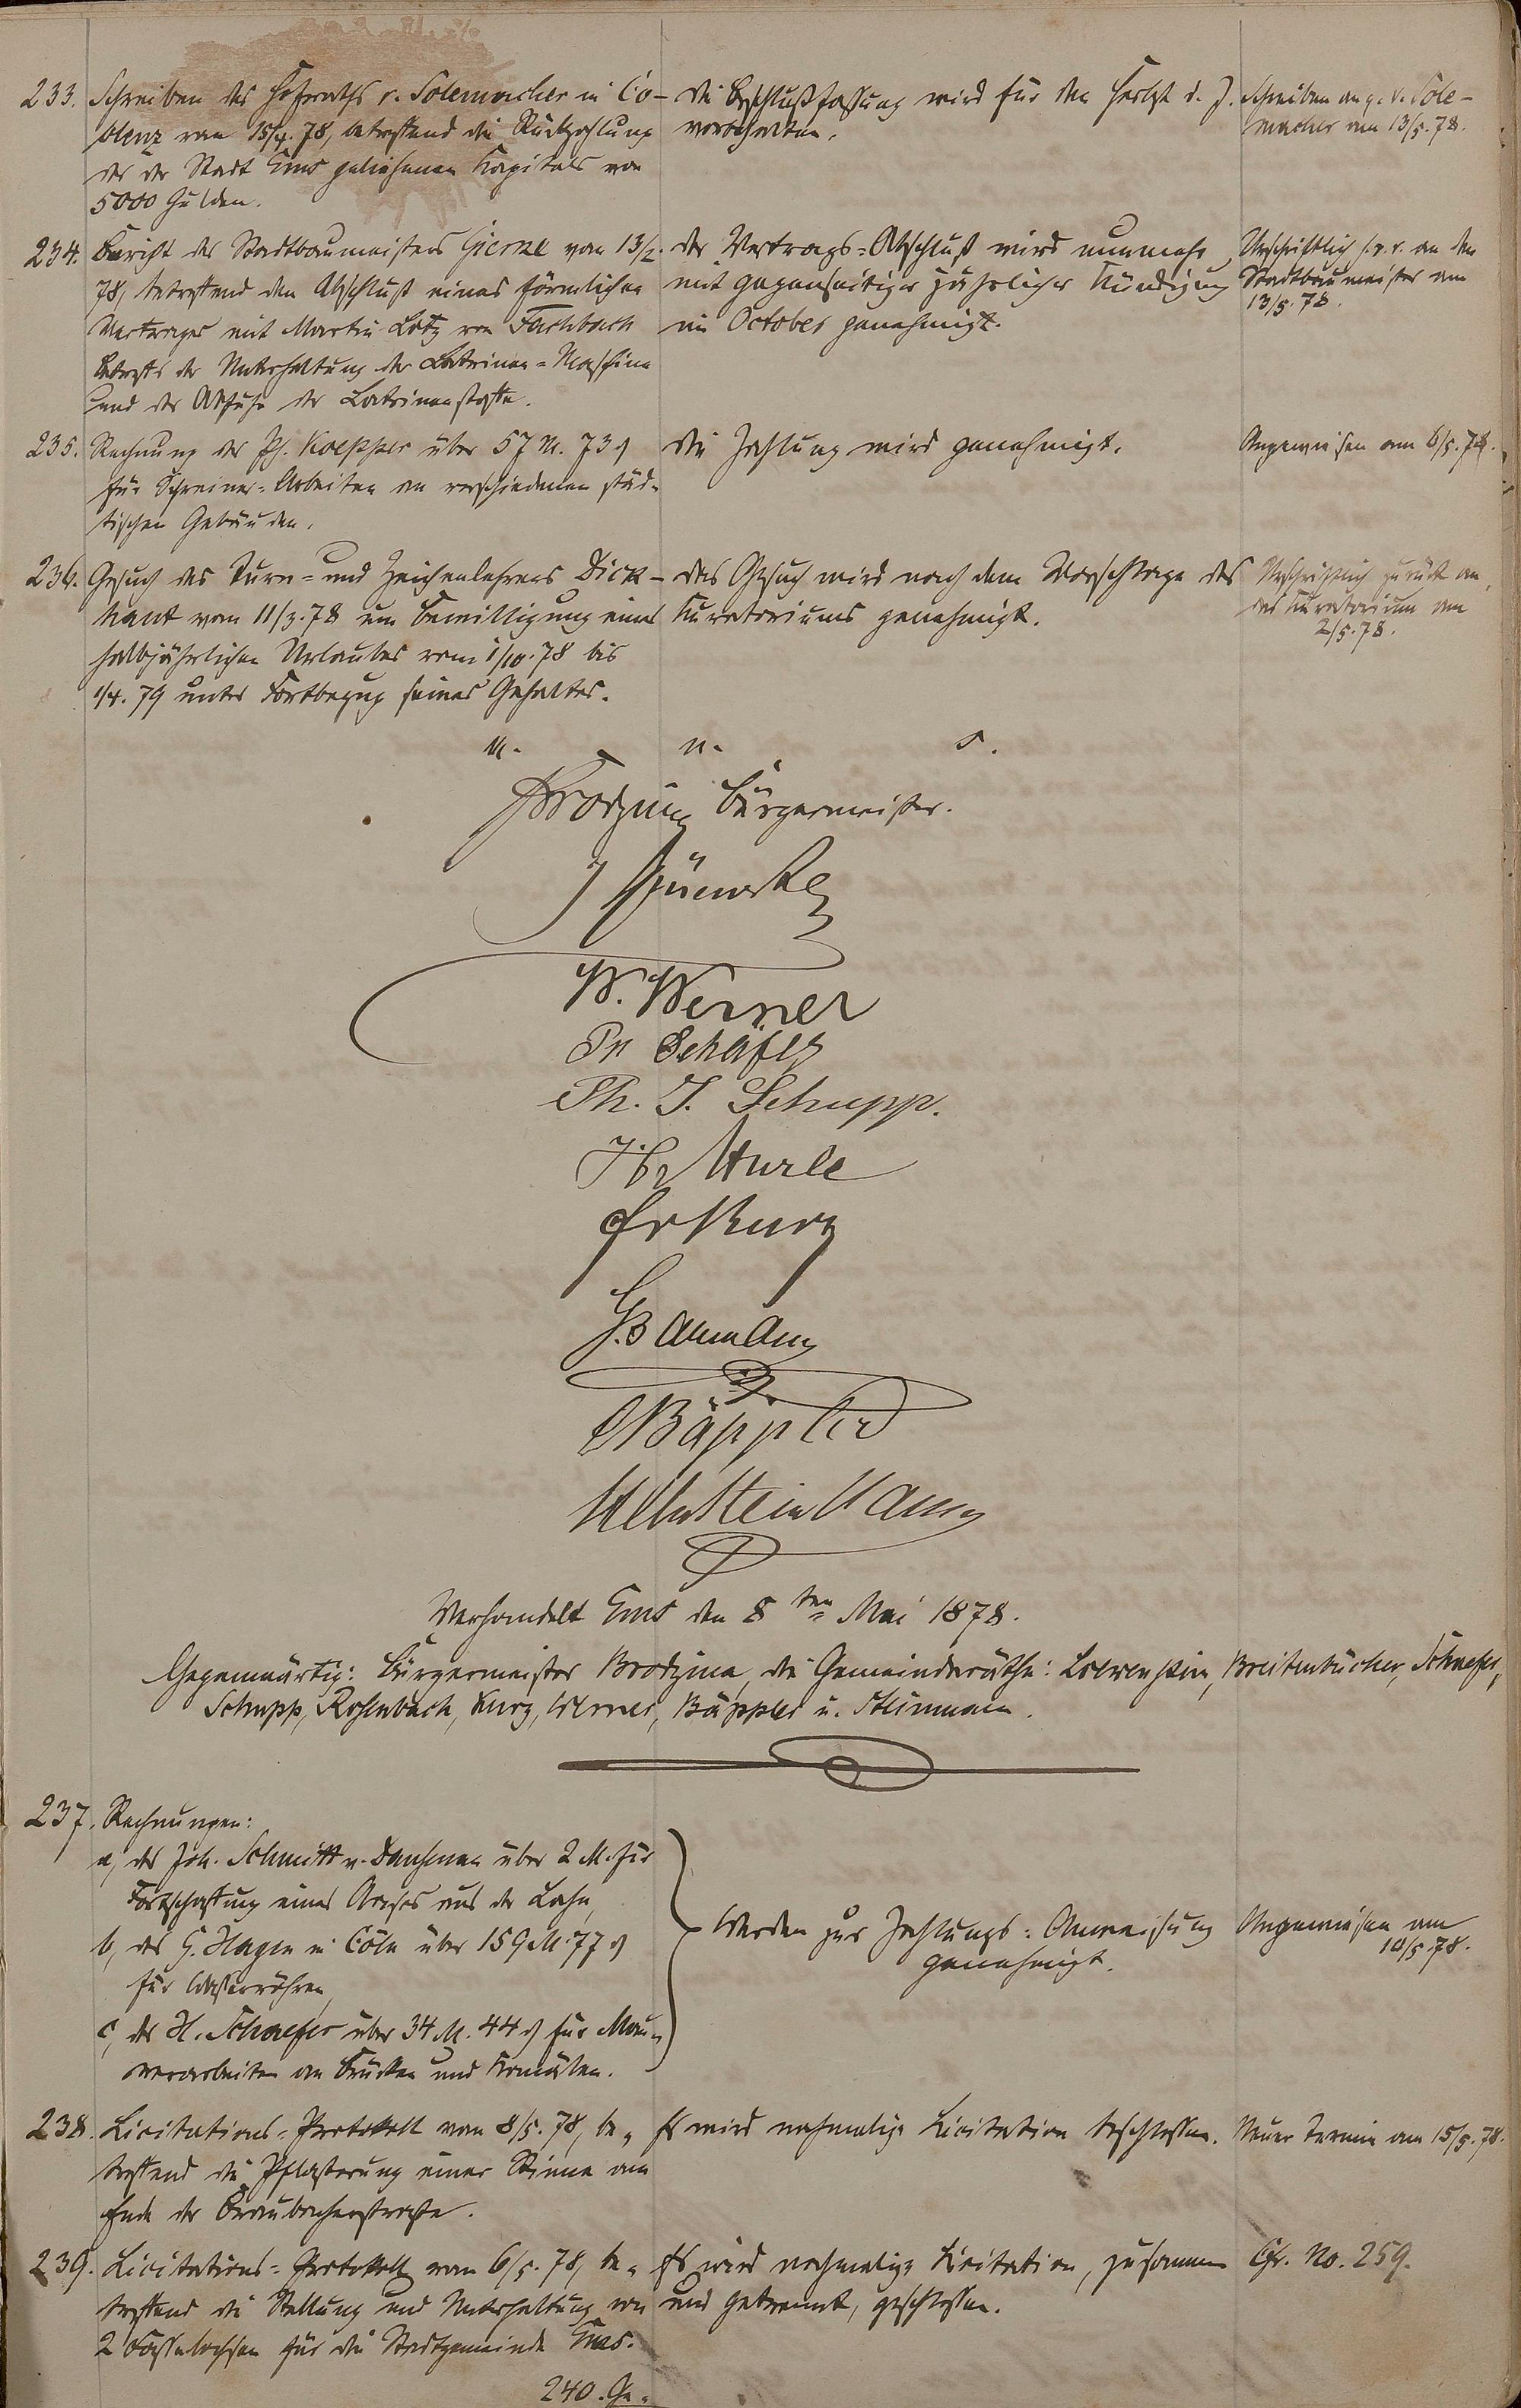 233. Schreiben des Hofraths v. Solemacher in Co-
blenz vom 15/4. 78, betreffend die Rückzahlung
des der Stadt Ems geliehenen Kapitals von
5000 Gulden.
Die Beschlußfassung wird für den Herbst d. J.
vorbehalten.
Schreiben an p. v. Sole-
macher am 13/5. 78.
234. Bericht des Stadtbaumeisters Gierke vom 13/2.
78, betreffend den Abschluß eines förmlichen
Vertrages mit Martin Lotz von Fachbach
betreffs der Unterhaltung der Latrinen-Maschine
und der Abfuhr der Latrinenstoffe.
Der Vertrags-Abschluß wird nunmehr
mit gegenseitiger jährlicher Kündigung
im October genehmigt.
Urschriftlich s. p. r. an den
Stadtbaumeister am
13/5. 78.
235. Rechnung des Ph. Koepper über 57 M. 73 ₰
für Schreiner-Arbeiten an verschiedenen städ-
tischen Gebäuden.
Die Zahlung wird genehmigt.
Angewiesen am 6/5. 78.
236. Gesuch des Turn- und Zeichenlehrers Dick-
haut vom 11/3. 78 um Bewilligung eines
halbjährlichen Urlaubes vom 1/10. 78 bis
1/4. 79 unter Fortbezug seines Gehaltes.
Das Gesuch wird nach dem Vorschlage des
Kuratoriums genehmigt.
Urschriftlich zurück an
das Kuratorium am
2/5. 78.
Brodzina Bürgermeister.
W. Werner
Ph Schäfer
Ph. J. Schupp.
Fr Kurz
Bäppler
Verhandelt Ems den 8ten Mai 1878.
Gegenwärtig: Bürgermeister Brodzina, die Gemeinderäthe: Loewenstein, Breitenbücher, Schaefer,
Schupp, Rohrbach, Kurz, Werner, Bäppler u. Steinmann.
237. Rechnungen:
a, des Joh. Schmitt v. Dausenau über 2 M. für
Fortschaffung eines Aases aus der Lahn,
b, des G. Hagen in Cöln über 159 M. 77 ₰
für Wasserröhren,
c, des H. Schaefer über 34 M. 44 ₰ für Mau-
rerarbeiten an Brücken und Kanälen.
Werden zur Zahlungs-Anweisung
genehmigt.
Angewiesen am
10/5. 78.
238. Licitations-Protokoll vom 8/5. 78, be-
treffend die Pflasterung einer Rinne am
Ende der Braubacherstraße.
Es wird nochmalige Licitation beschlossen.
Neuer Termin am 15/5. 78.
239. Licitations-Protokoll vom 6/5. 78, be-
treffend die Stellung und Unterhaltung von
2 Fasselochsen für die Stadtgemeinde Ems.
Es wird nochmalige Licitation, zusammen
und getrennt, geschlossen.
Cfr. No. 259.
240. Ge-